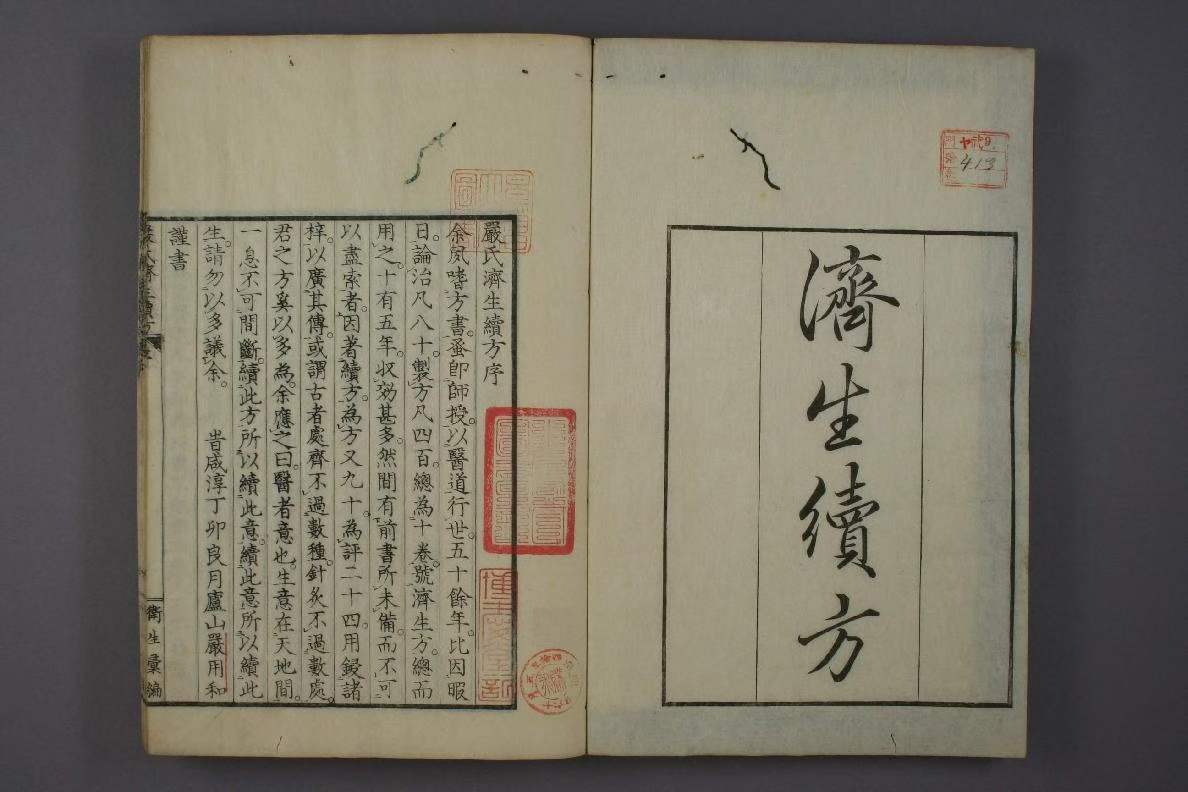 濟生續方
413
嚴氏濟生續方序
余夙嗜方書。蚤卽師授。以醫道行世。五十餘年。比因暇
日。論治凡八十。製方凡四百。總為十卷。號濟生方。總而
用之。十有五年。収効甚多。然間有前書所未備。而不可
以盡索者。因著續方。為方又九十。為評二十四。用鋟諸
梓。以廣其傳。或謂古者處齊不過數種。針灸不過數處。
君之方奚以多為。余應之曰。醫者意也。生意在天地間。
一息不可間斷。續此方所以續此意。續此意所以續此
生。請勿以多議余。 旹咸淳丁卯良月廬山嚴用和
謹書
衛生彙編